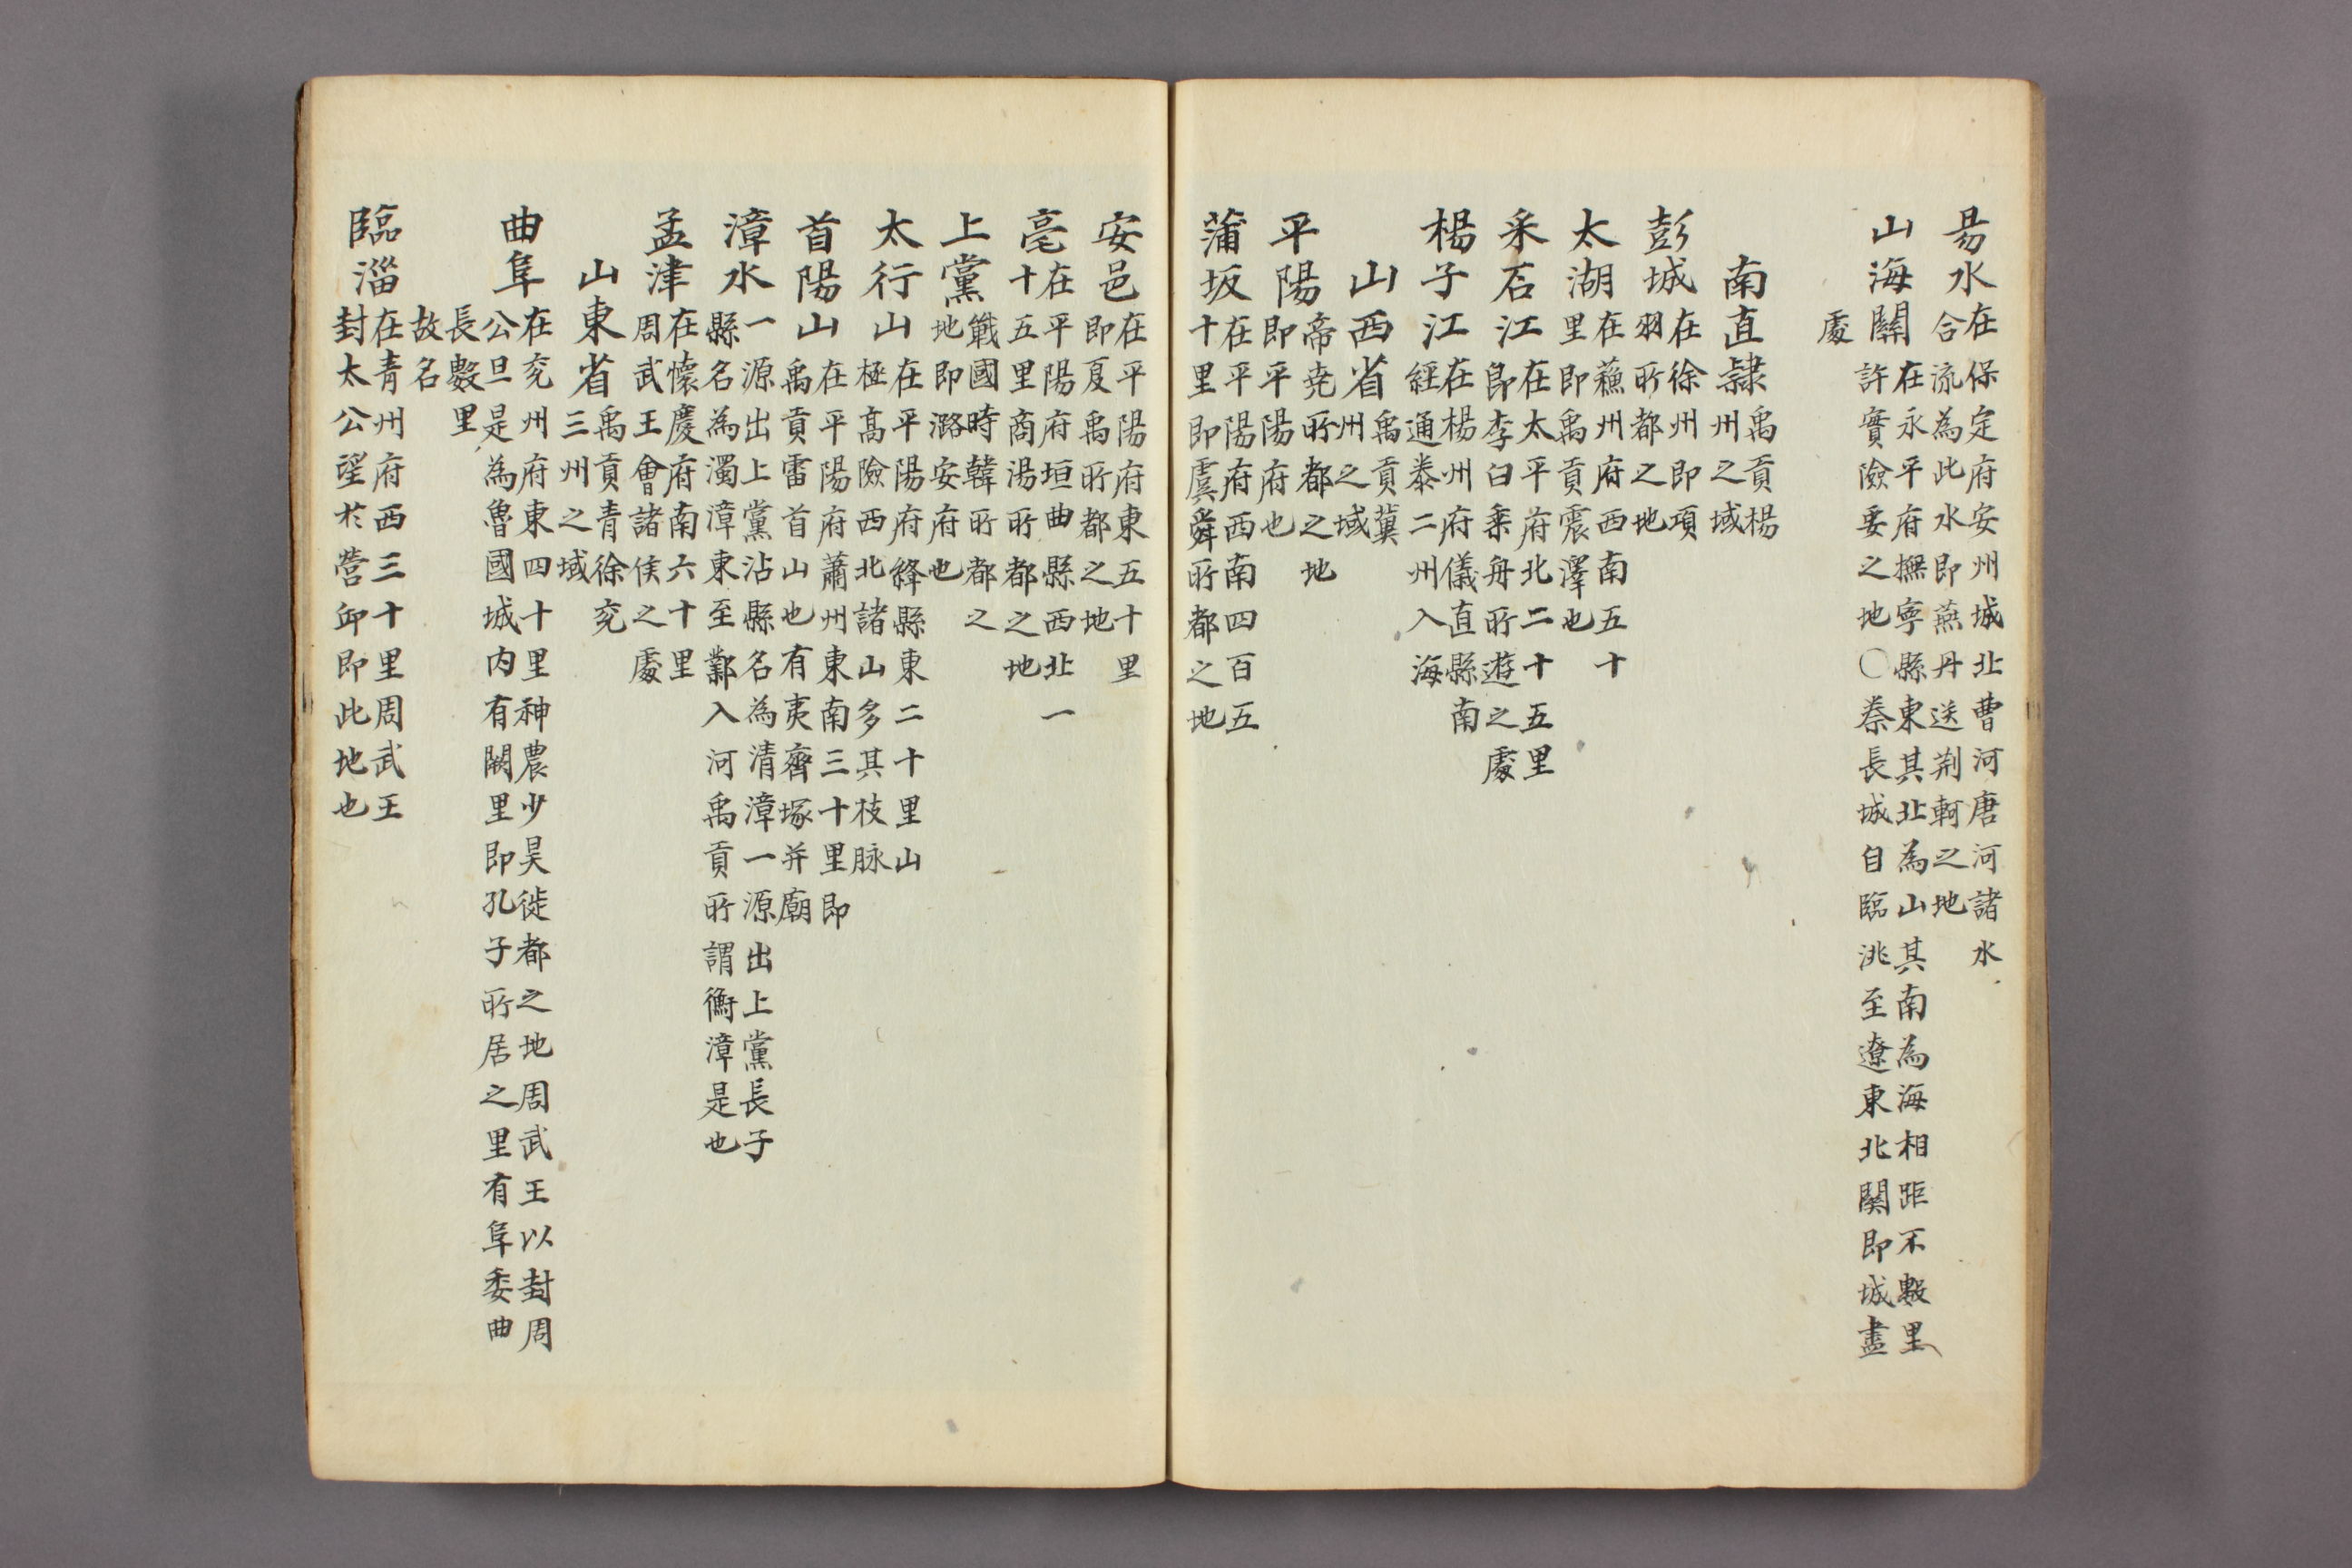 易水在保定府安州城北曹河唐河諸水
合流為此水即燕丹送荊軻之地
山海關在永平府撫寧縣東其北為山其南為海相距不數里
許實險要之地〇秦長城自臨洮至遼東北關即城盡
處
南直隸禹貢楊
州之域
彭城在徐州即項
羽所都之地
太湖在蘓州府西南五十
里即禹貢震澤也
采石江在太平府北二十五里
即李白乘舟所遊之處
楊子江在楊州府儀直縣南
經通泰二州入海
山西省禹貢冀
州之域
平陽帝堯所都之地
即平陽府也
蒲坂在平陽府西南四百五
十里即虞舜所都之地
安邑在平陽府東五十里
即夏禹所都之地
亳在平陽府垣曲縣西北一
十五里商湯所都之地
上黨戰國時韓所都之
地即潞安府也
太行山在平陽府絳縣東二十里山
極高險西北諸山多其枝脉
首陽山在平陽府蕭州東南三十里即
禹貢雷首山也有夷齊塚并廟
漳水一源出上黨沾縣名為清漳一源出上黨長子
縣名為濁漳東至鄴入河禹貢所謂衡漳是也
孟津在懷慶府南六十里
周武王會諸侯之處
山東省禹貢青徐兖
三州之域
曲阜在兖州府東四十里神農少昊徙都之地周武王以封周
公旦是為魯國城内有闕里即孔子所居之里有阜委曲
長數里
故名
臨淄在青州府西三十里周武王
封太公望於營邱即此地也